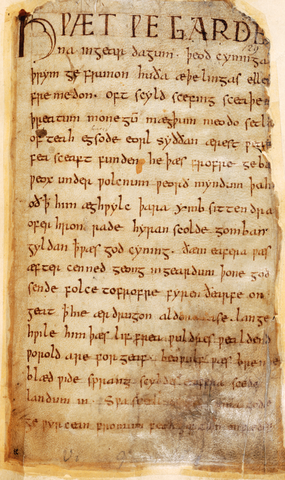 HǷÆT ǷE GARDE
na ingear dagum. þeod cyninga
þrym ge frunon huða æþelingas elle
fre medon. oft scyld scefing sceaþe
þreatum monegū mægþum meodo setla
of teah egsode eorl syððan ærest ƿear
fea sceaft funden he þæs frofre geba
ƿeox under ƿolcnum ƿeorð myndum þah
oð þ him æghƿylc þara ymb sittendra
ofer hron rade hyran scolde gomban
gyldan þ ƿæs god cyning. ðæm eafera ƿæs
æfter cenned geong in geardum þone god
sende folce tofrofre fyren ðearfe on
geat þ hie ær drugon aldor ase. lange
hƿile him þæs lif frea ƿuldres ƿealdend
ƿorold are for geaf. beoƿulf ƿæs breme
blæd ƿide sprang scyldes eafera scede
landum in. Sƿa
ge ƿyrcean fromum